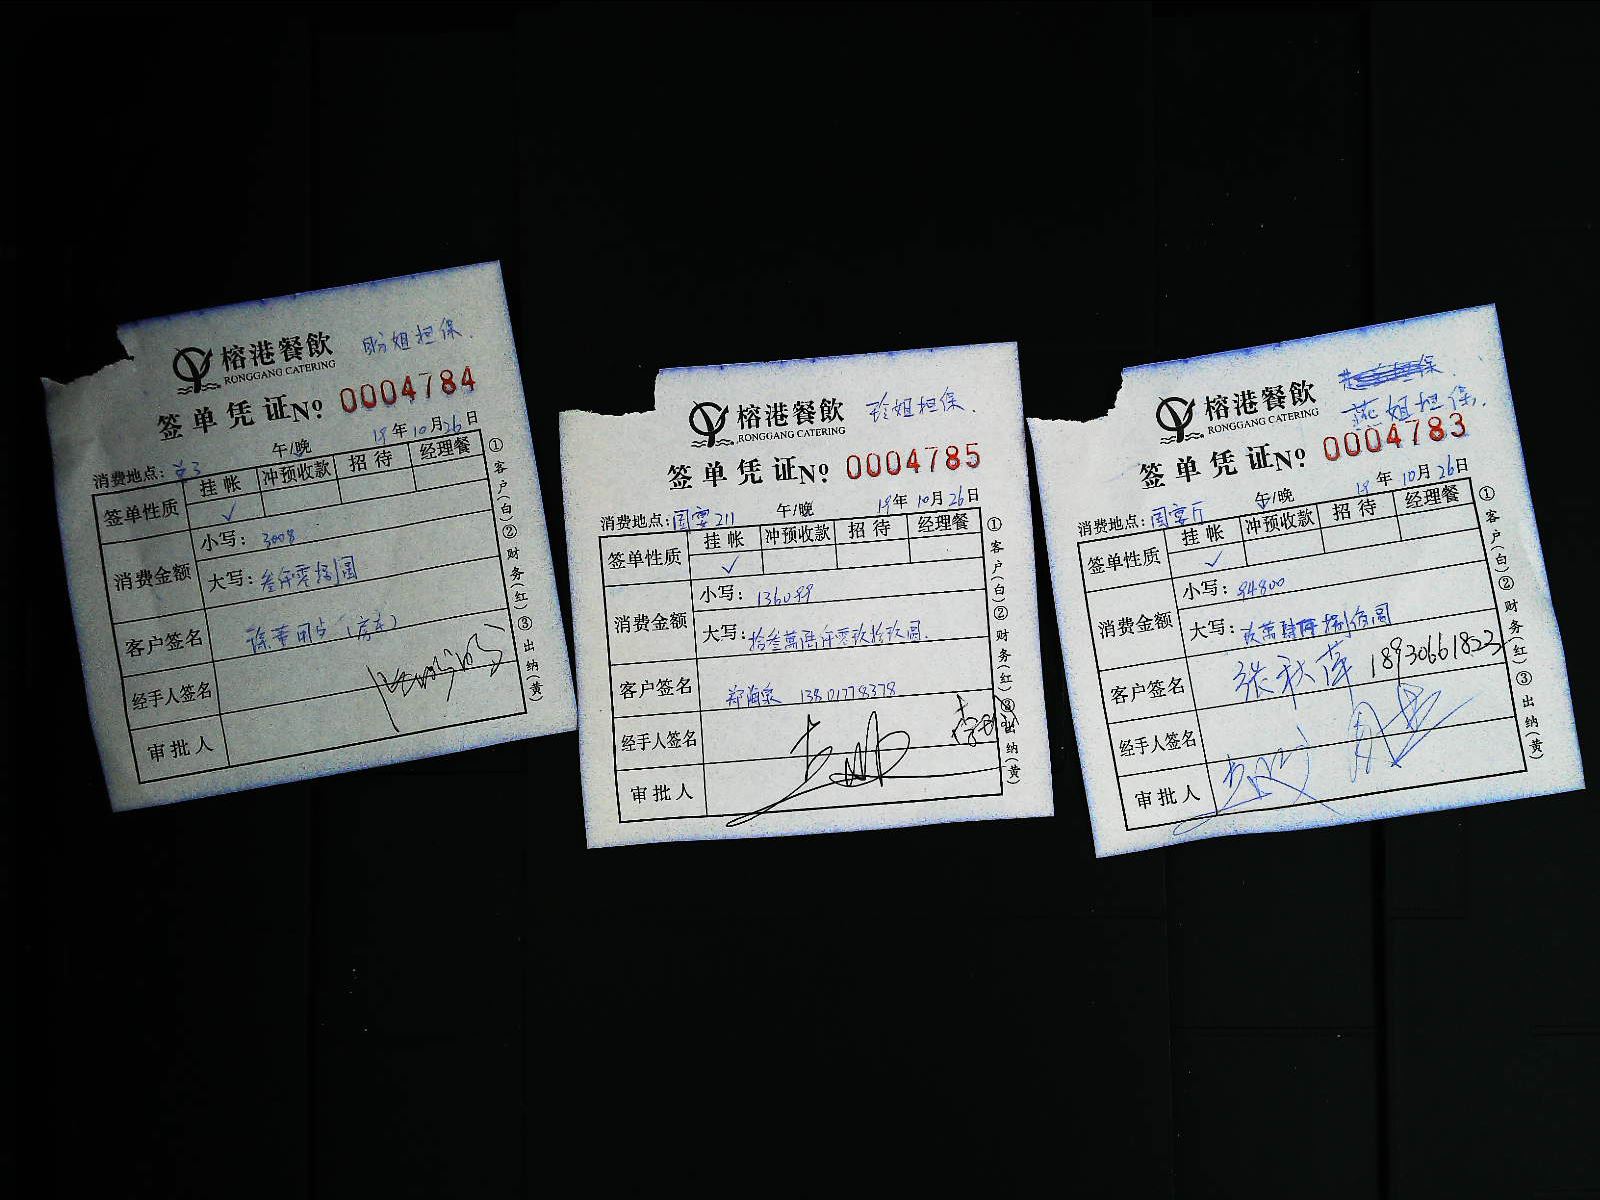 榕港餐飲 盼姐担保.
RONGGANG CATERING
签单凭证№ 0004784
19年10月26日
消费地点: 午/晚
签单性质 挂帐 冲预收款 招待 经理餐
✓
消费金额 小写: 3008
大写: 叁仟零捌圆
客户签名
经手人签名
审批人
①客户(白)②财务(红)③出纳(黄)
榕港餐飲 珍姐担保.
RONGGANG CATERING
签单凭证№ 0004785
19年10月26日
消费地点: 国宴211 午/晚
签单性质 挂帐 冲预收款 招待 经理餐
✓
消费金额 小写:
大写: 拾叁萬陆仟零玖拾玖圆.
客户签名 郑海泉 13801778378
经手人签名
审批人
①客户(白)②财务(红)③出纳(黄)
榕港餐飲 担保.
RONGGANG CATERING 燕姐担保.
签单凭证№ 0004783
19年10月26日
消费地点: 国宴厅 午/晚
签单性质 挂帐 冲预收款 招待 经理餐
✓
消费金额 小写: 94800
大写: 玖萬肆仟捌佰圆
客户签名 张秋萍 18930661823
经手人签名
审批人
①客户(白)②财务(红)③出纳(黄)